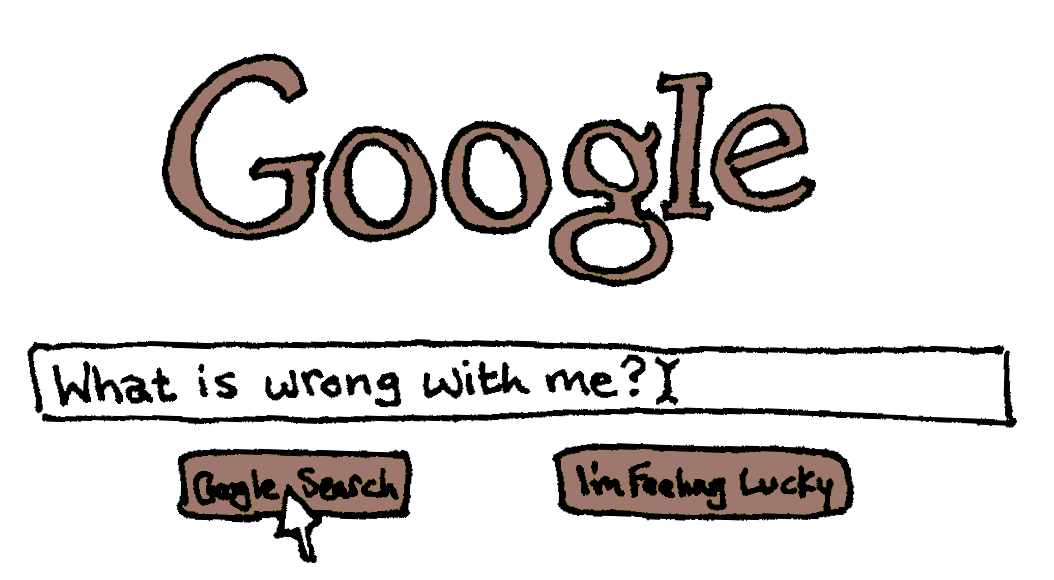 Google
What is wrong with me?
Google Search
I'm Feeling Lucky